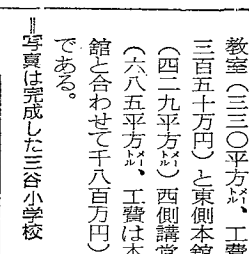 教室（三三〇平方㍍、工費
三百五十万円）と東側本館
（四二九平方㍍）西側講堂
（六八五平方㍍、工費は本
館と合わせて千八百万円）
である。
＝写真は完成した三谷小学校